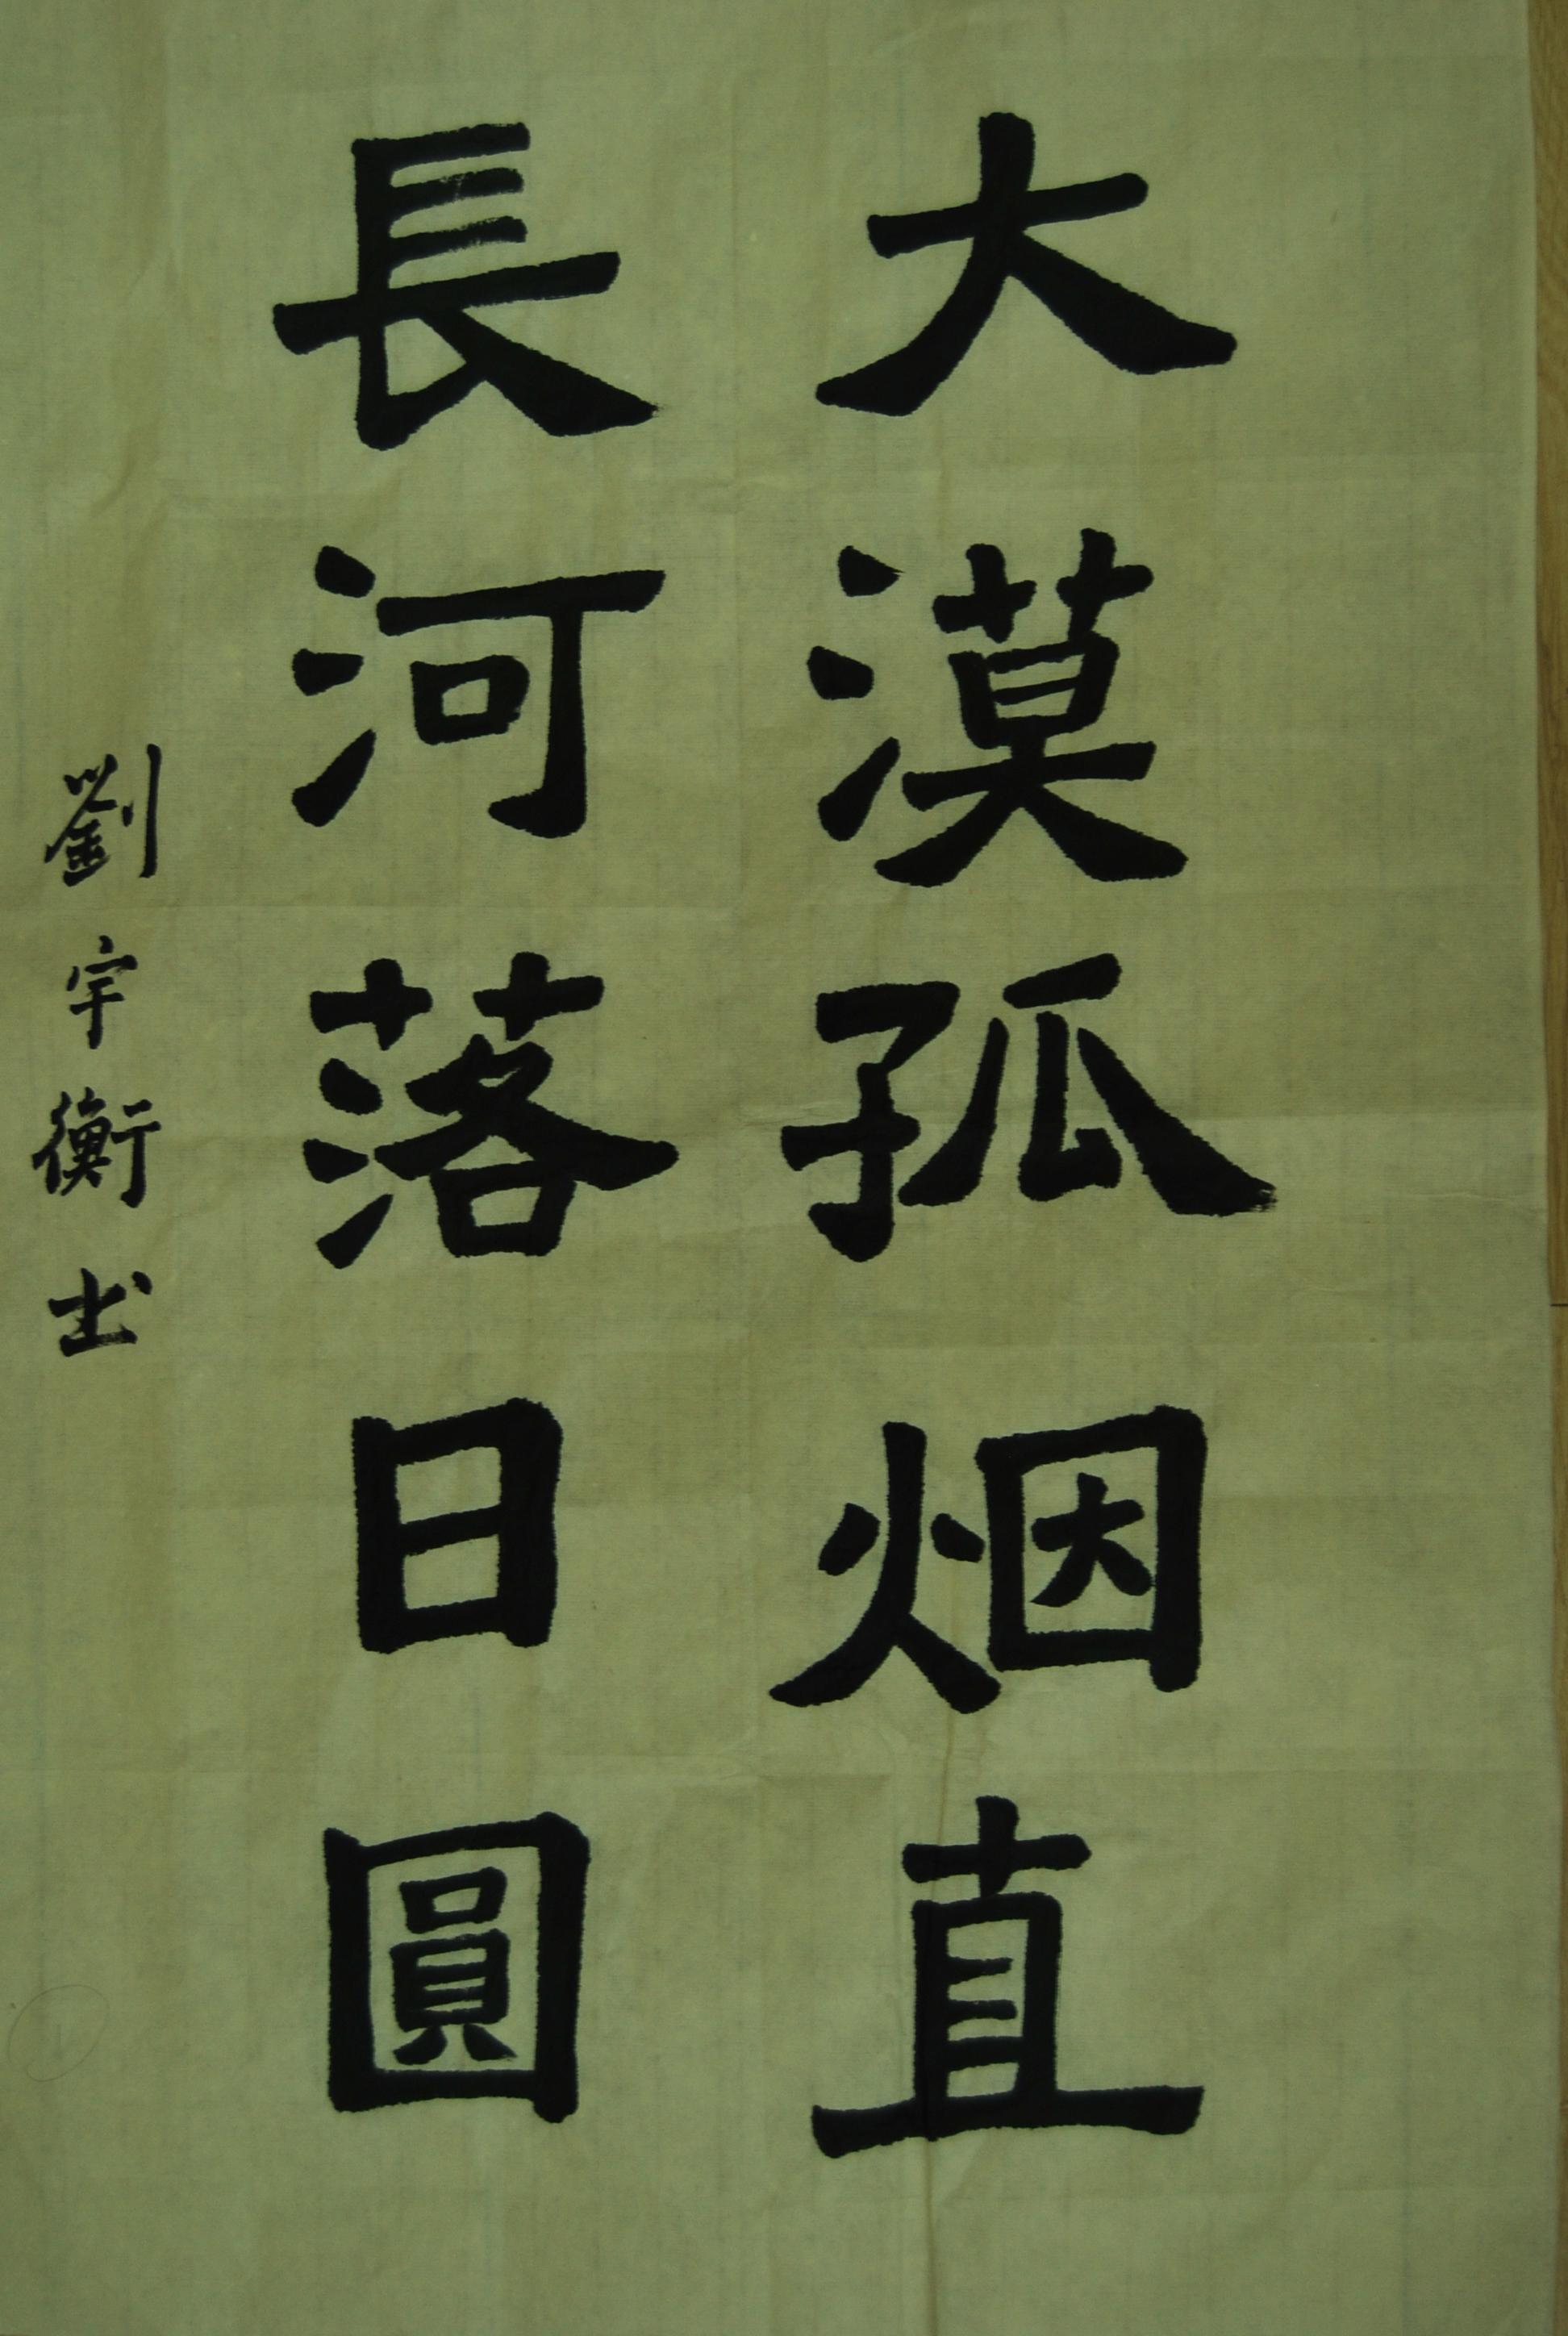 大漠孤烟直
長河落日圓
劉宇衡书